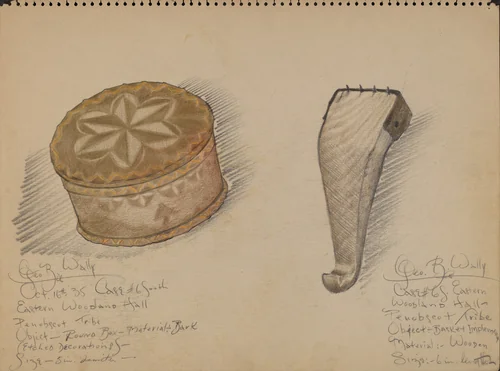 Geo. B. Wally
Oct. 18th 35 Case #6 South
Eastern Woodland Hall
Penobscot Tribe
Object - Round Box - Material: Bark
(Etched Decorations) -
Size - 5 in.
Geo. B. Wally
Case #6 Eastern
Woodland Hall -
Penobscot Tribe
Object - Basket
Material: - Wooden
Size: - 6 in.